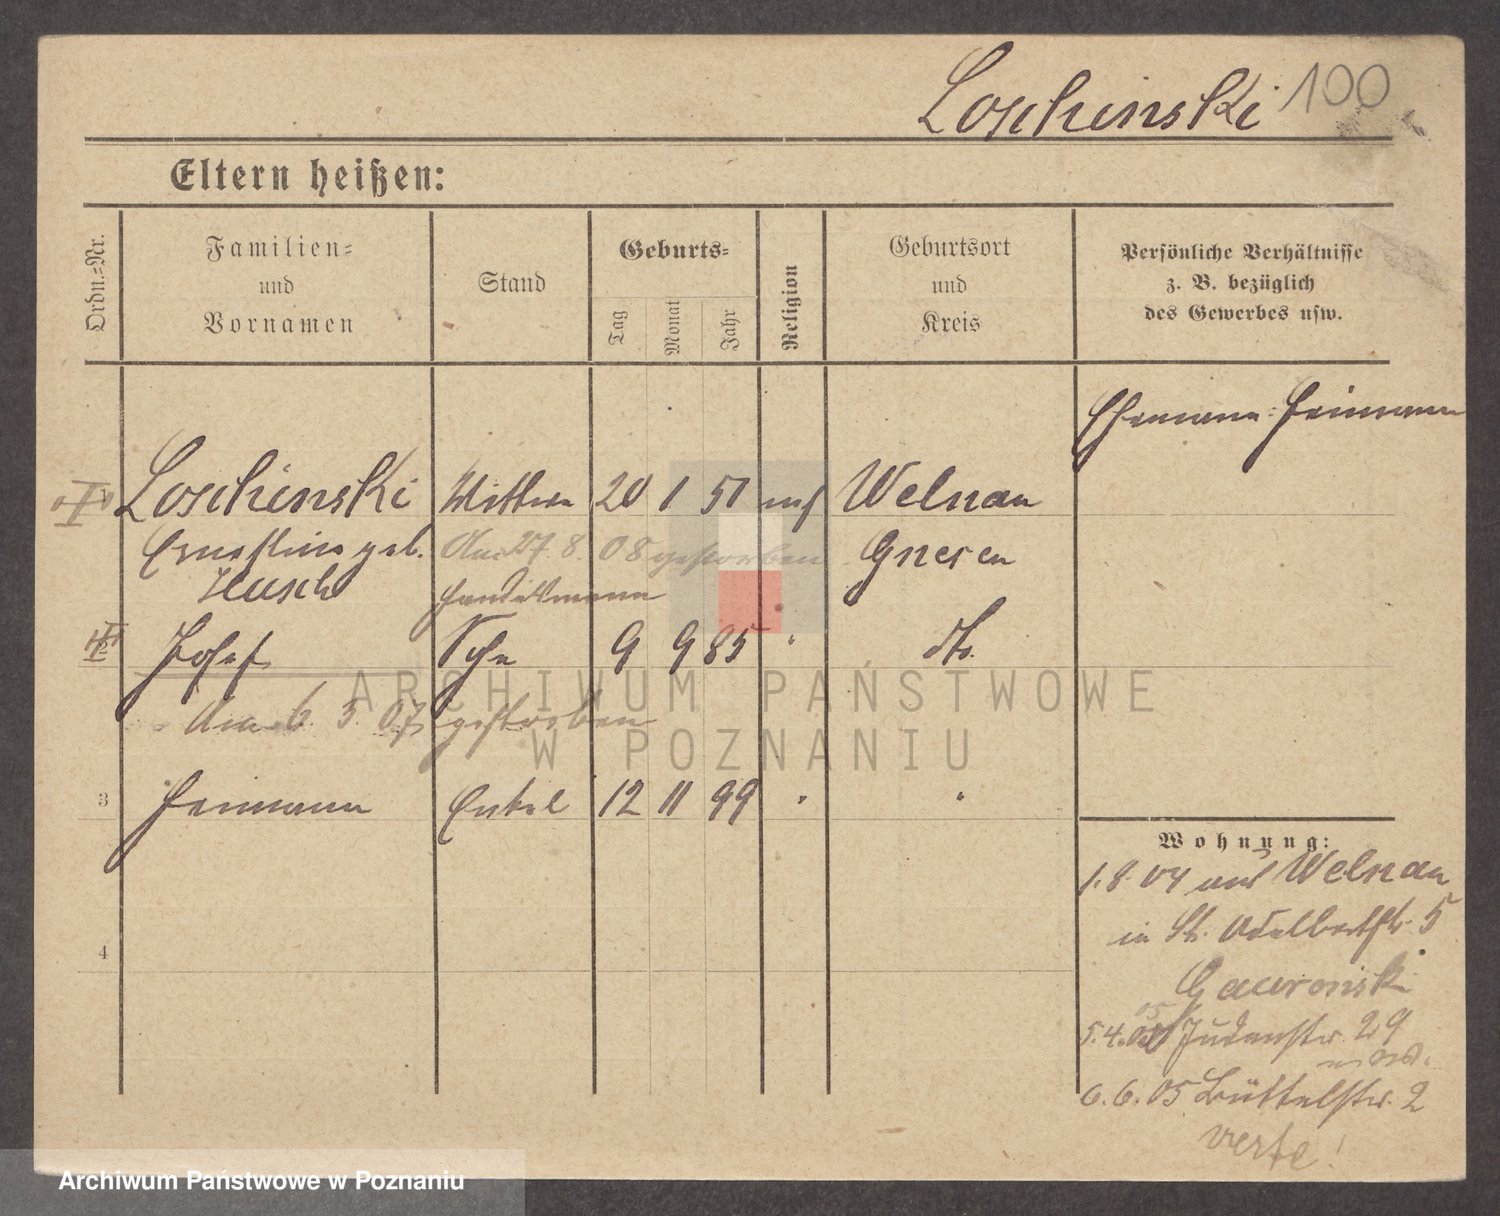 Loschinski 100
Eltern heißen:
Ordn.=Nr.
Familien=
und
Vornamen
Stand
Geburts=
Tag
Monat
Jahr
Religion
Geburtsort
und
Kreis
Persönliche Verhältnisse
z. B. bezüglich
des Gewerbes usw.
Ehemann: Heimann
Loschinski Wittwe 20 1 51 mos Welnau
Ernestine geb. Am 27. 8. 08 gestorben Gnesen
Husch Handelsmann
Josef Sohn 9 9 85 " do.
Am 6. 3. 07 gestorben
3 Hermann Enkel 12 11 99 " "
Wohnung:
1.8.04 aus Welnau
in St. Adalbertstr. 5
Gawronski
05
5.4. Judenstr. 29
6.6.05 Büttelstr. 2
verte!
4
ARCHIWUM PAŃSTWOWE
W POZNANIU
Archiwum Państwowe w Poznaniu